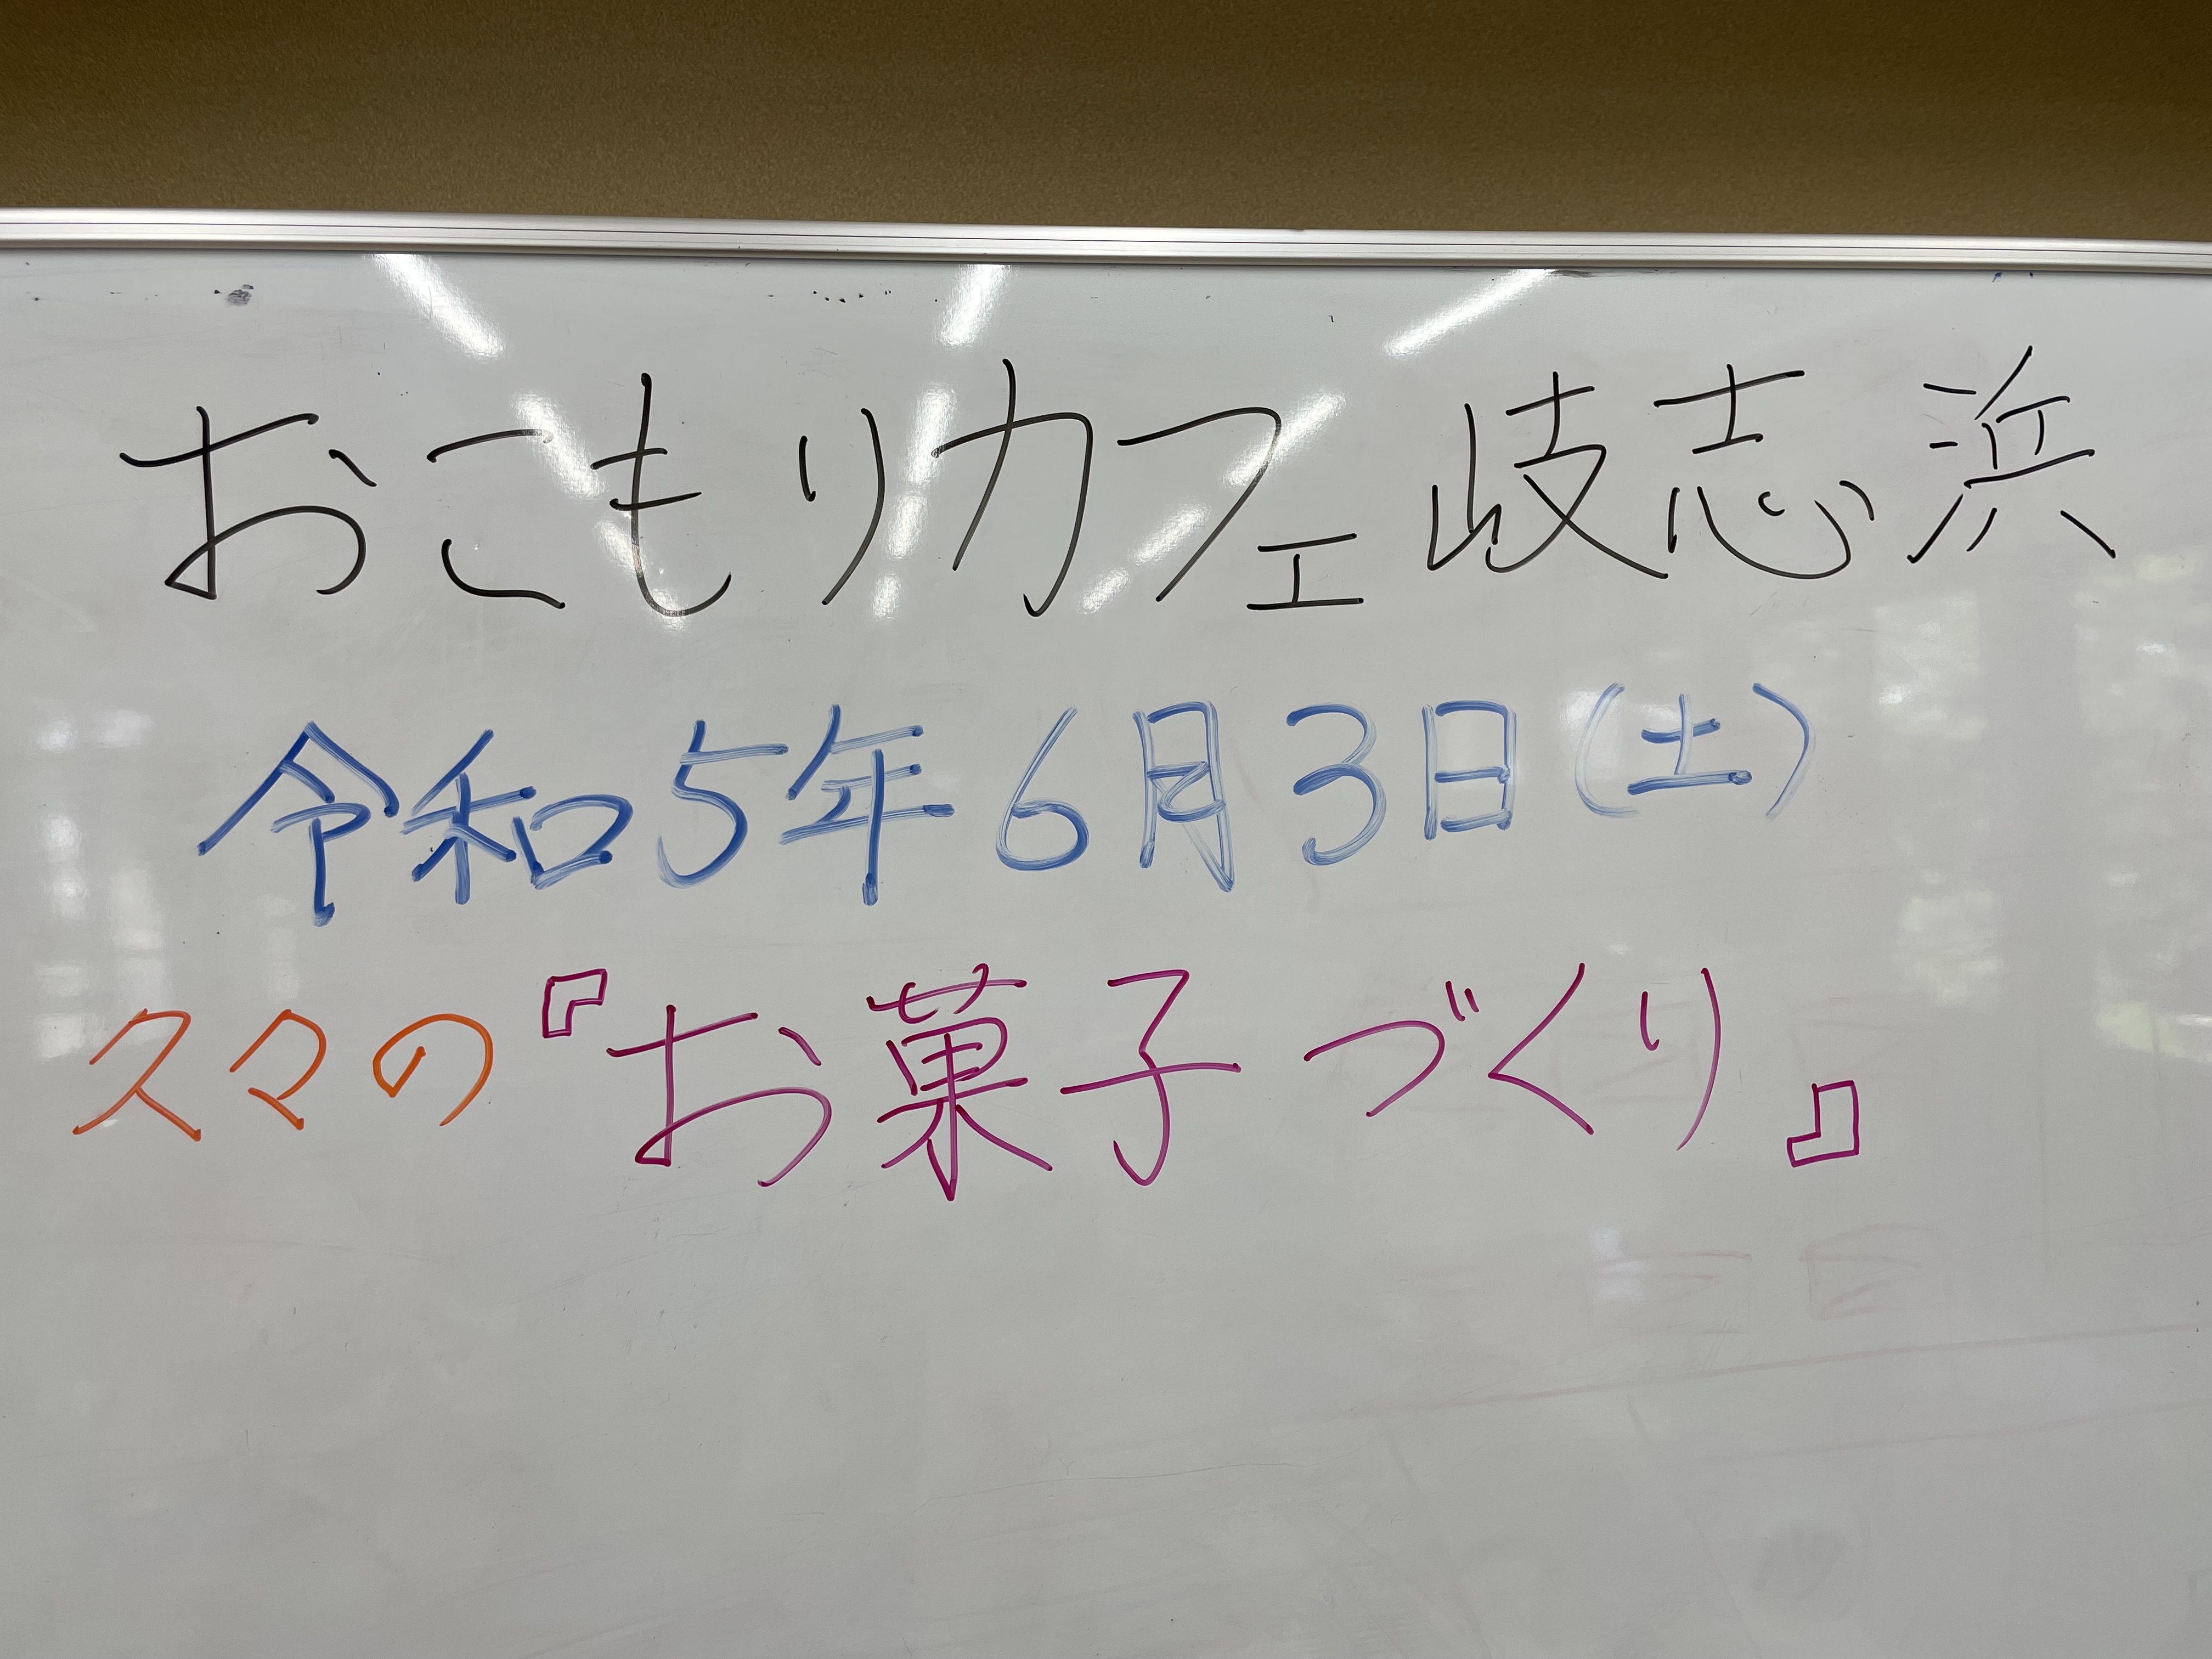 おこもりカフェ岐志浜
令和5年6月3日(土)
久々の『お菓子づくり』